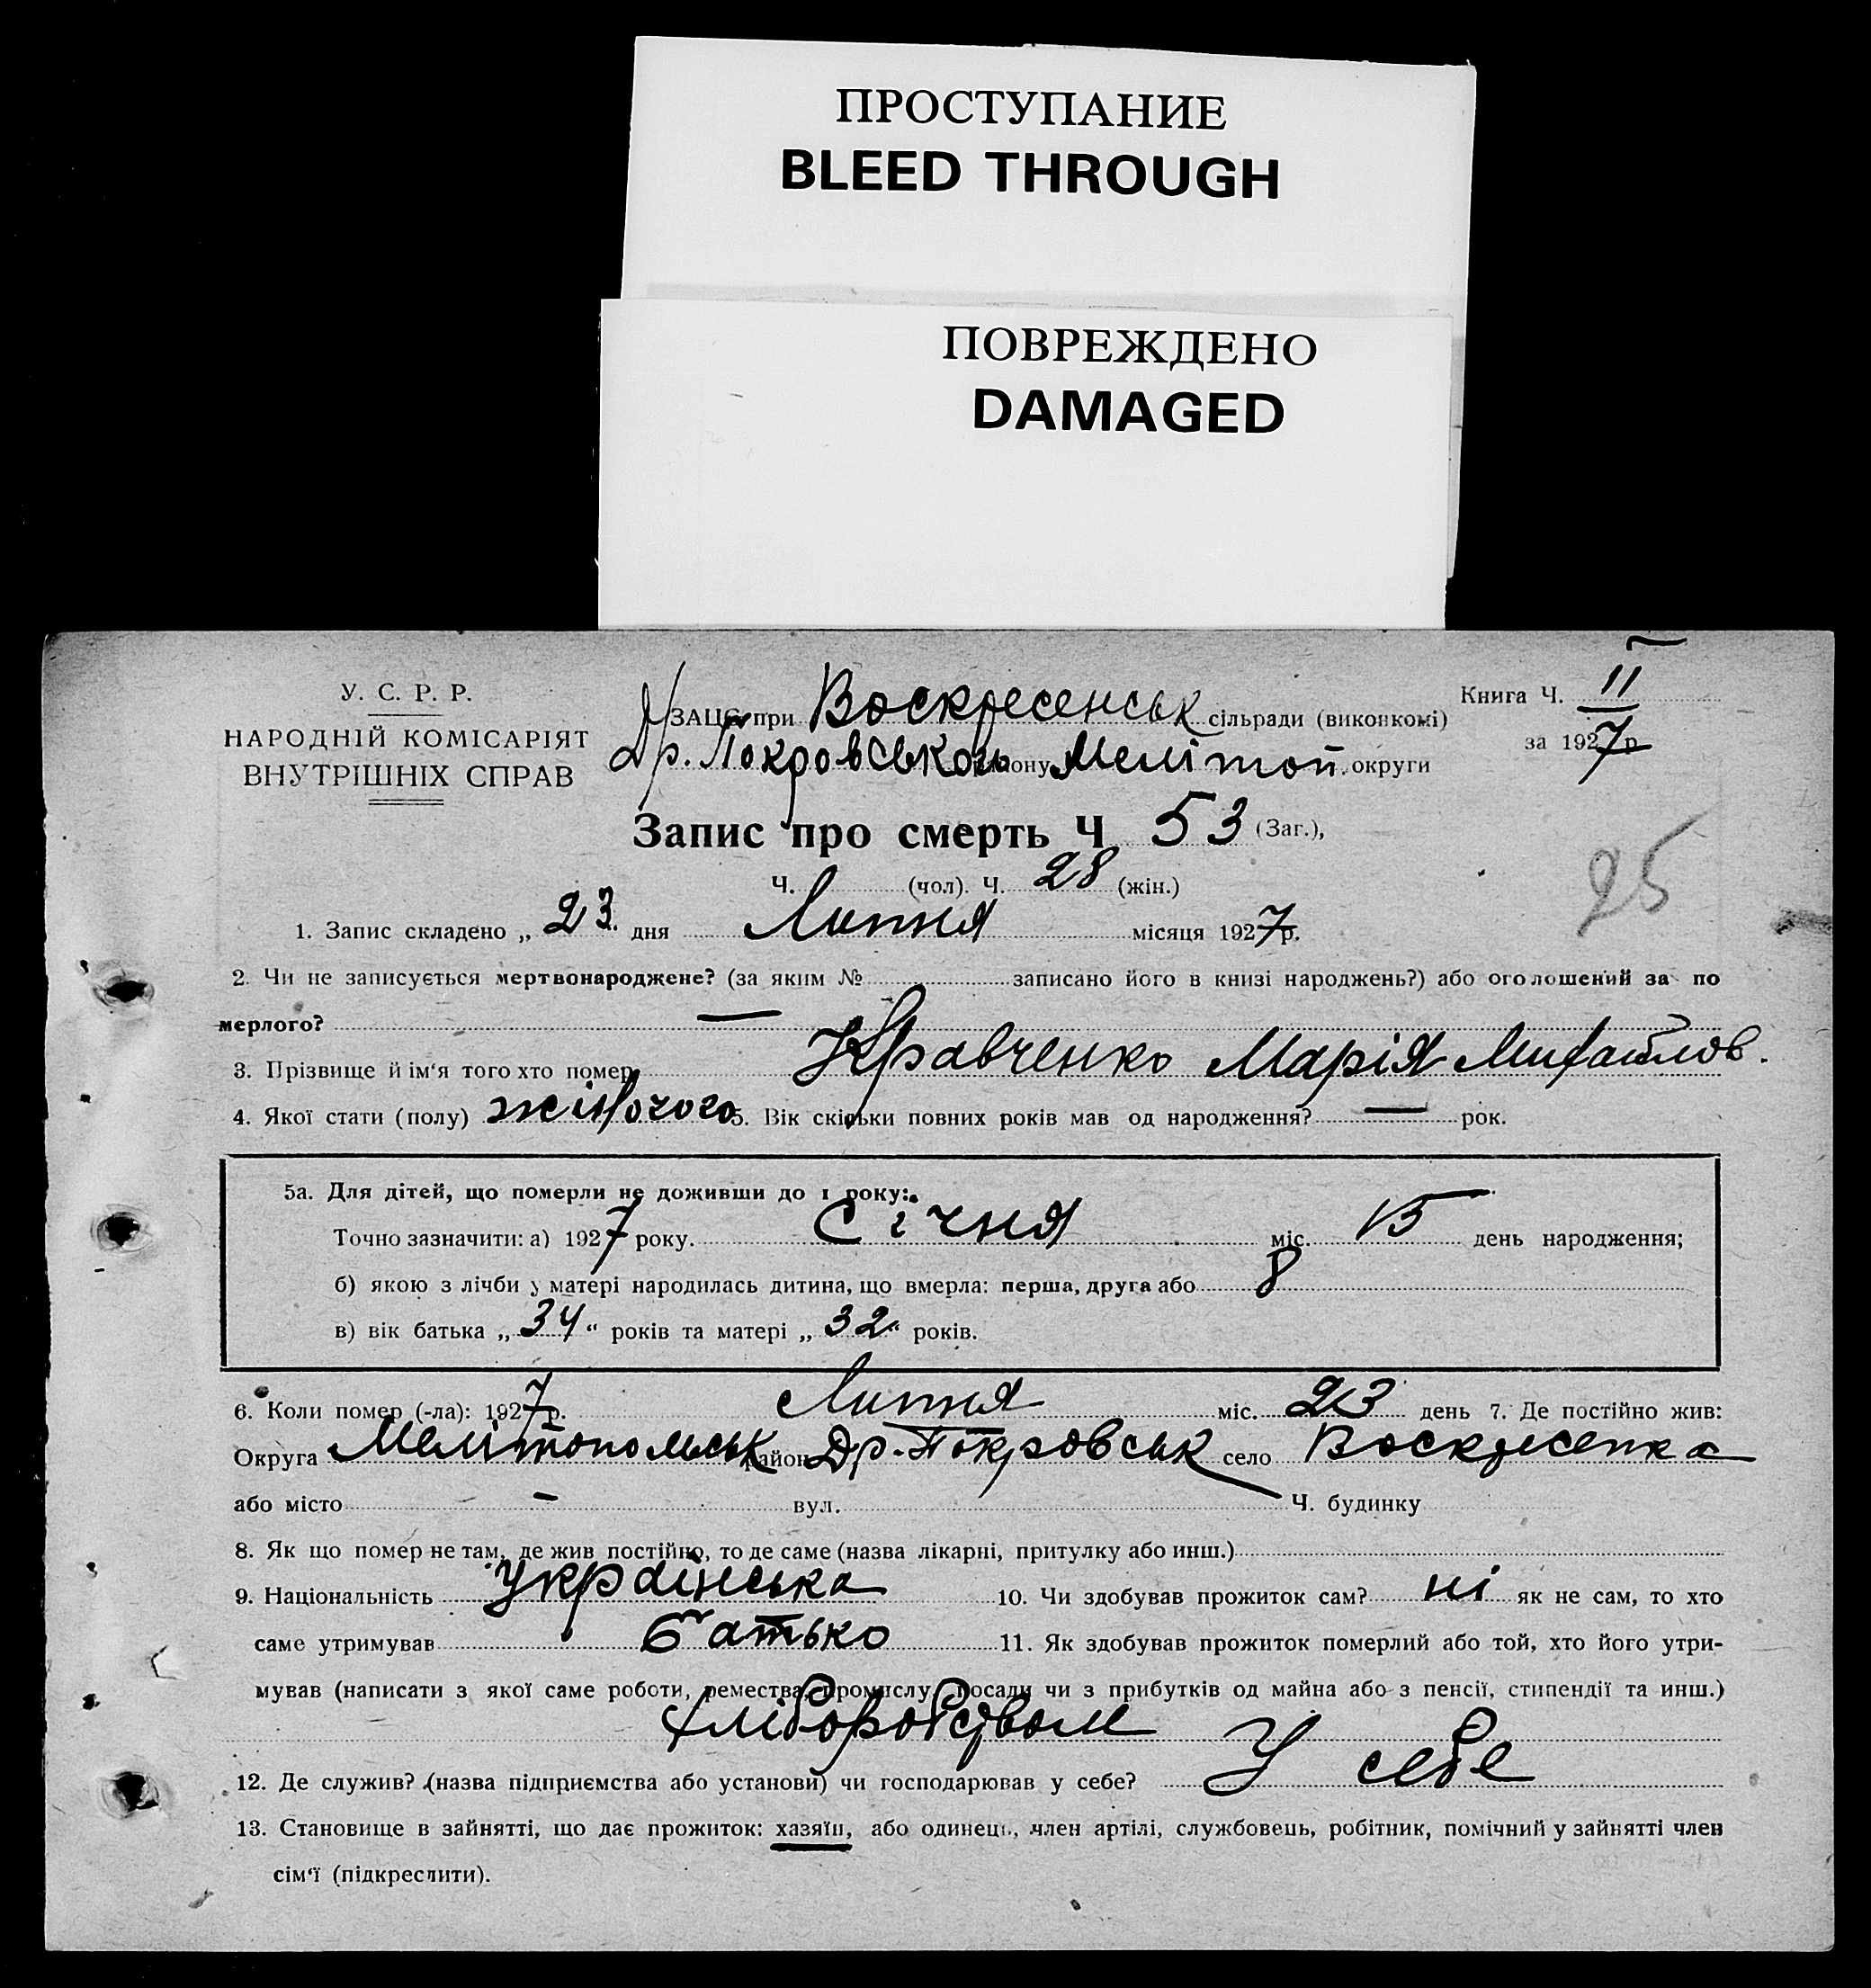 ПРОСТУПАНИЕ
BLEED THROUGH
ПОВРЕЖДЕНО
DAMAGED
У. С. Р. Р.
НАРОДНІЙ КОМІСАРІЯТ
ВНУТРІШНІХ СПРАВ
ЗАЦС при Воскресенськ сільради (виконкомі)
Др. Покровського району Мелітоп. округи
Книга Ч. II
за 1927 р
Запис про смерть Ч 53 (Заг.),
Ч. (чол). Ч. 28 (жін.)
25
1. Запис складено „ 23. дня Липня місяця 1927 р.
2. Чи не записується мертвонароджене? (за яким № записано його в книзі народжень?) або оголошений за по
мерлого? —
3. Прізвище й ім'я того хто помер Кравченко Марія Михайлов.
4. Якої стати (полу) жіночого 5. Вік скільки повних років мав од народження? — рок.
5а. Для дітей, що померли не доживши до 1 року:
Точно зазначити: а) 1927 року. Січня міс. 15 день народження;
б) якою з лічби у матері народилась дитина, що вмерла: перша, друга або 8
в) вік батька „ 34 “ років та матері „ 32 “ років.
6. Коли помер (-ла): 1927 р. Липня міс. 23 день 7. Де постійно жив:
Округа Мелітопольськ район Др.-Покровськ село Воскресенка
або місто – вул. Ч. будинку
8. Як що помер не там, де жив постійно, то де саме (назва лікарні, притулку або инш.)
9. Національність українська 10. Чи здобував прожиток сам? ні як не сам, то хто
саме утримував батько 11. Як здобував прожиток померлий або той, хто його утри-
мував (написати з якої саме роботи, ремества, промислу, посади чи з прибутків од майна або з пенсії, стипендії та инш.)
хліборобством
12. Де служив? (назва підприємства або установи) чи господарював у себе? У себе
13. Становище в зайнятті, що дає прожиток: хазяїн, або одинець, член артілі, службовець, робітник, помічний у зайнятті член
сім'ї (підкреслити).